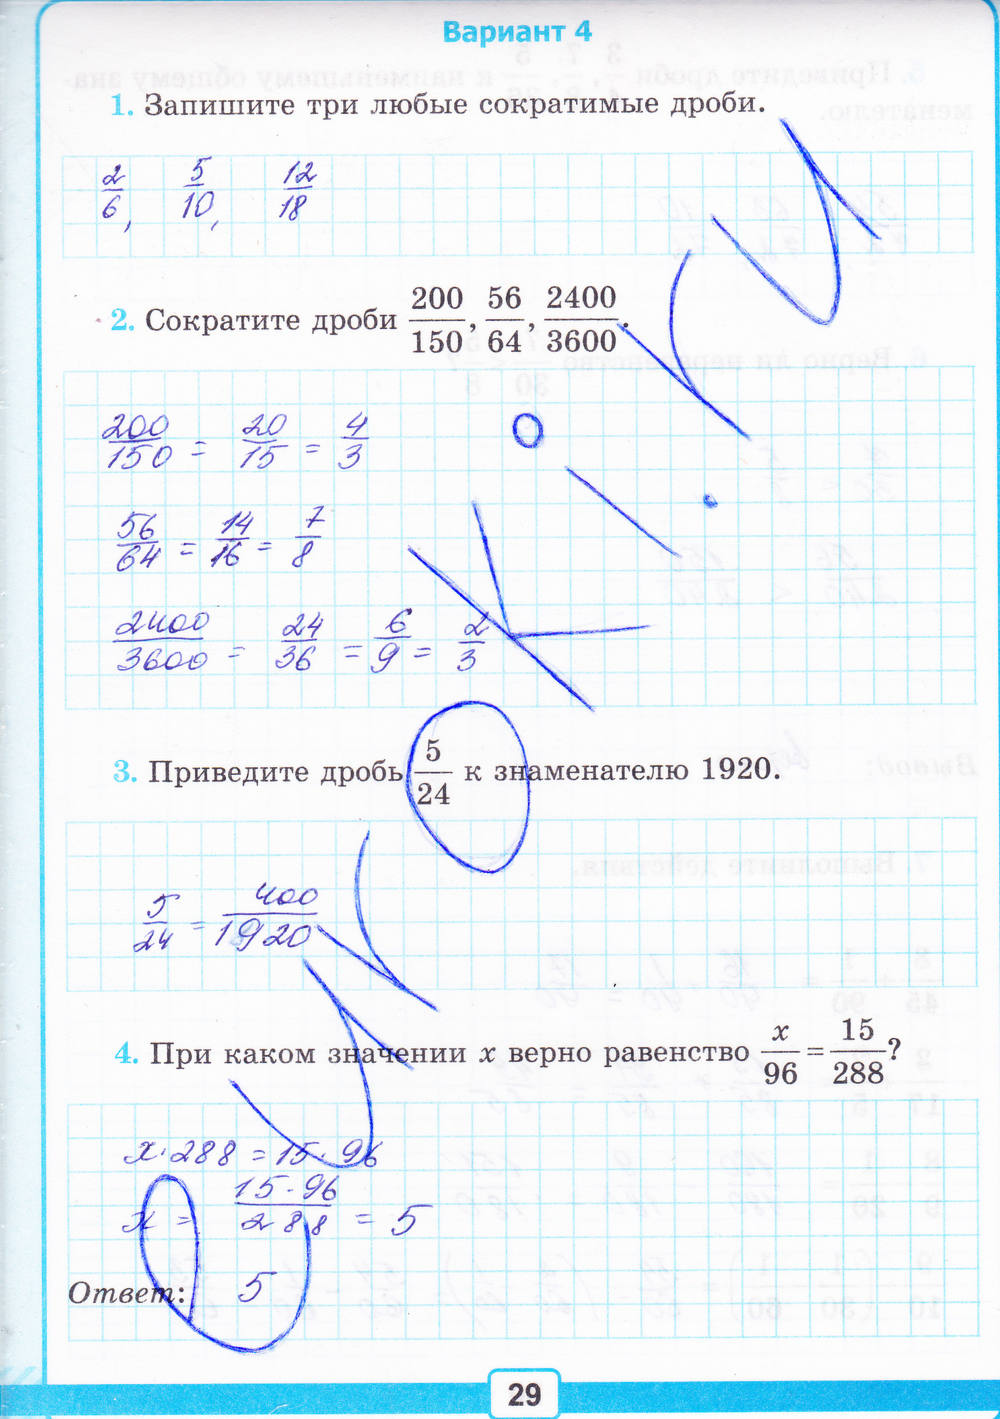 Вариант 4
1. Запишите три любые сократимые дроби.
2/6, 5/10, 12/18
2. Сократите дроби 200/150, 56/64, 2400/3600.
200/150 = 20/15 = 4/3
56/64 = 14/16 = 7/8
2400/3600 = 24/36 = 6/9 = 2/3
3. Приведите дробь 5/24 к знаменателю 1920.
5/24 = 400/1920
4. При каком значении x верно равенство x/96 = 15/288?
x · 288 = 15 · 96
x = 15 · 96/288 = 5
Ответ: 5
29